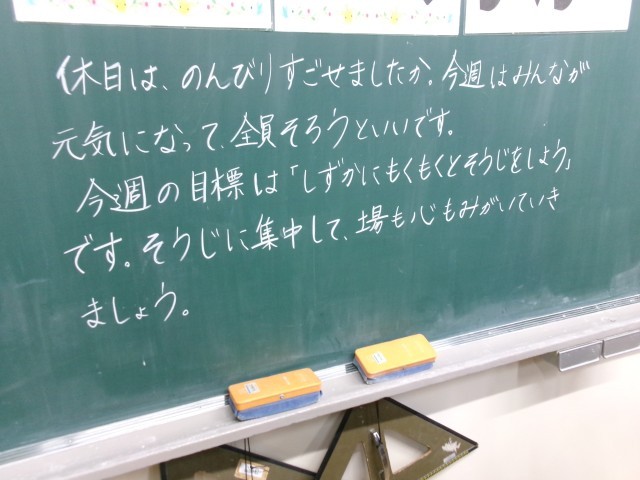 休日は、のんびりすごせましたか。今週はみんなが
元気になって、全員そろうといいです。
今週の目標は「しずかにもくもくとそうじをしよう」
です。そうじに集中して、場も心もみがいていき
ましょう。